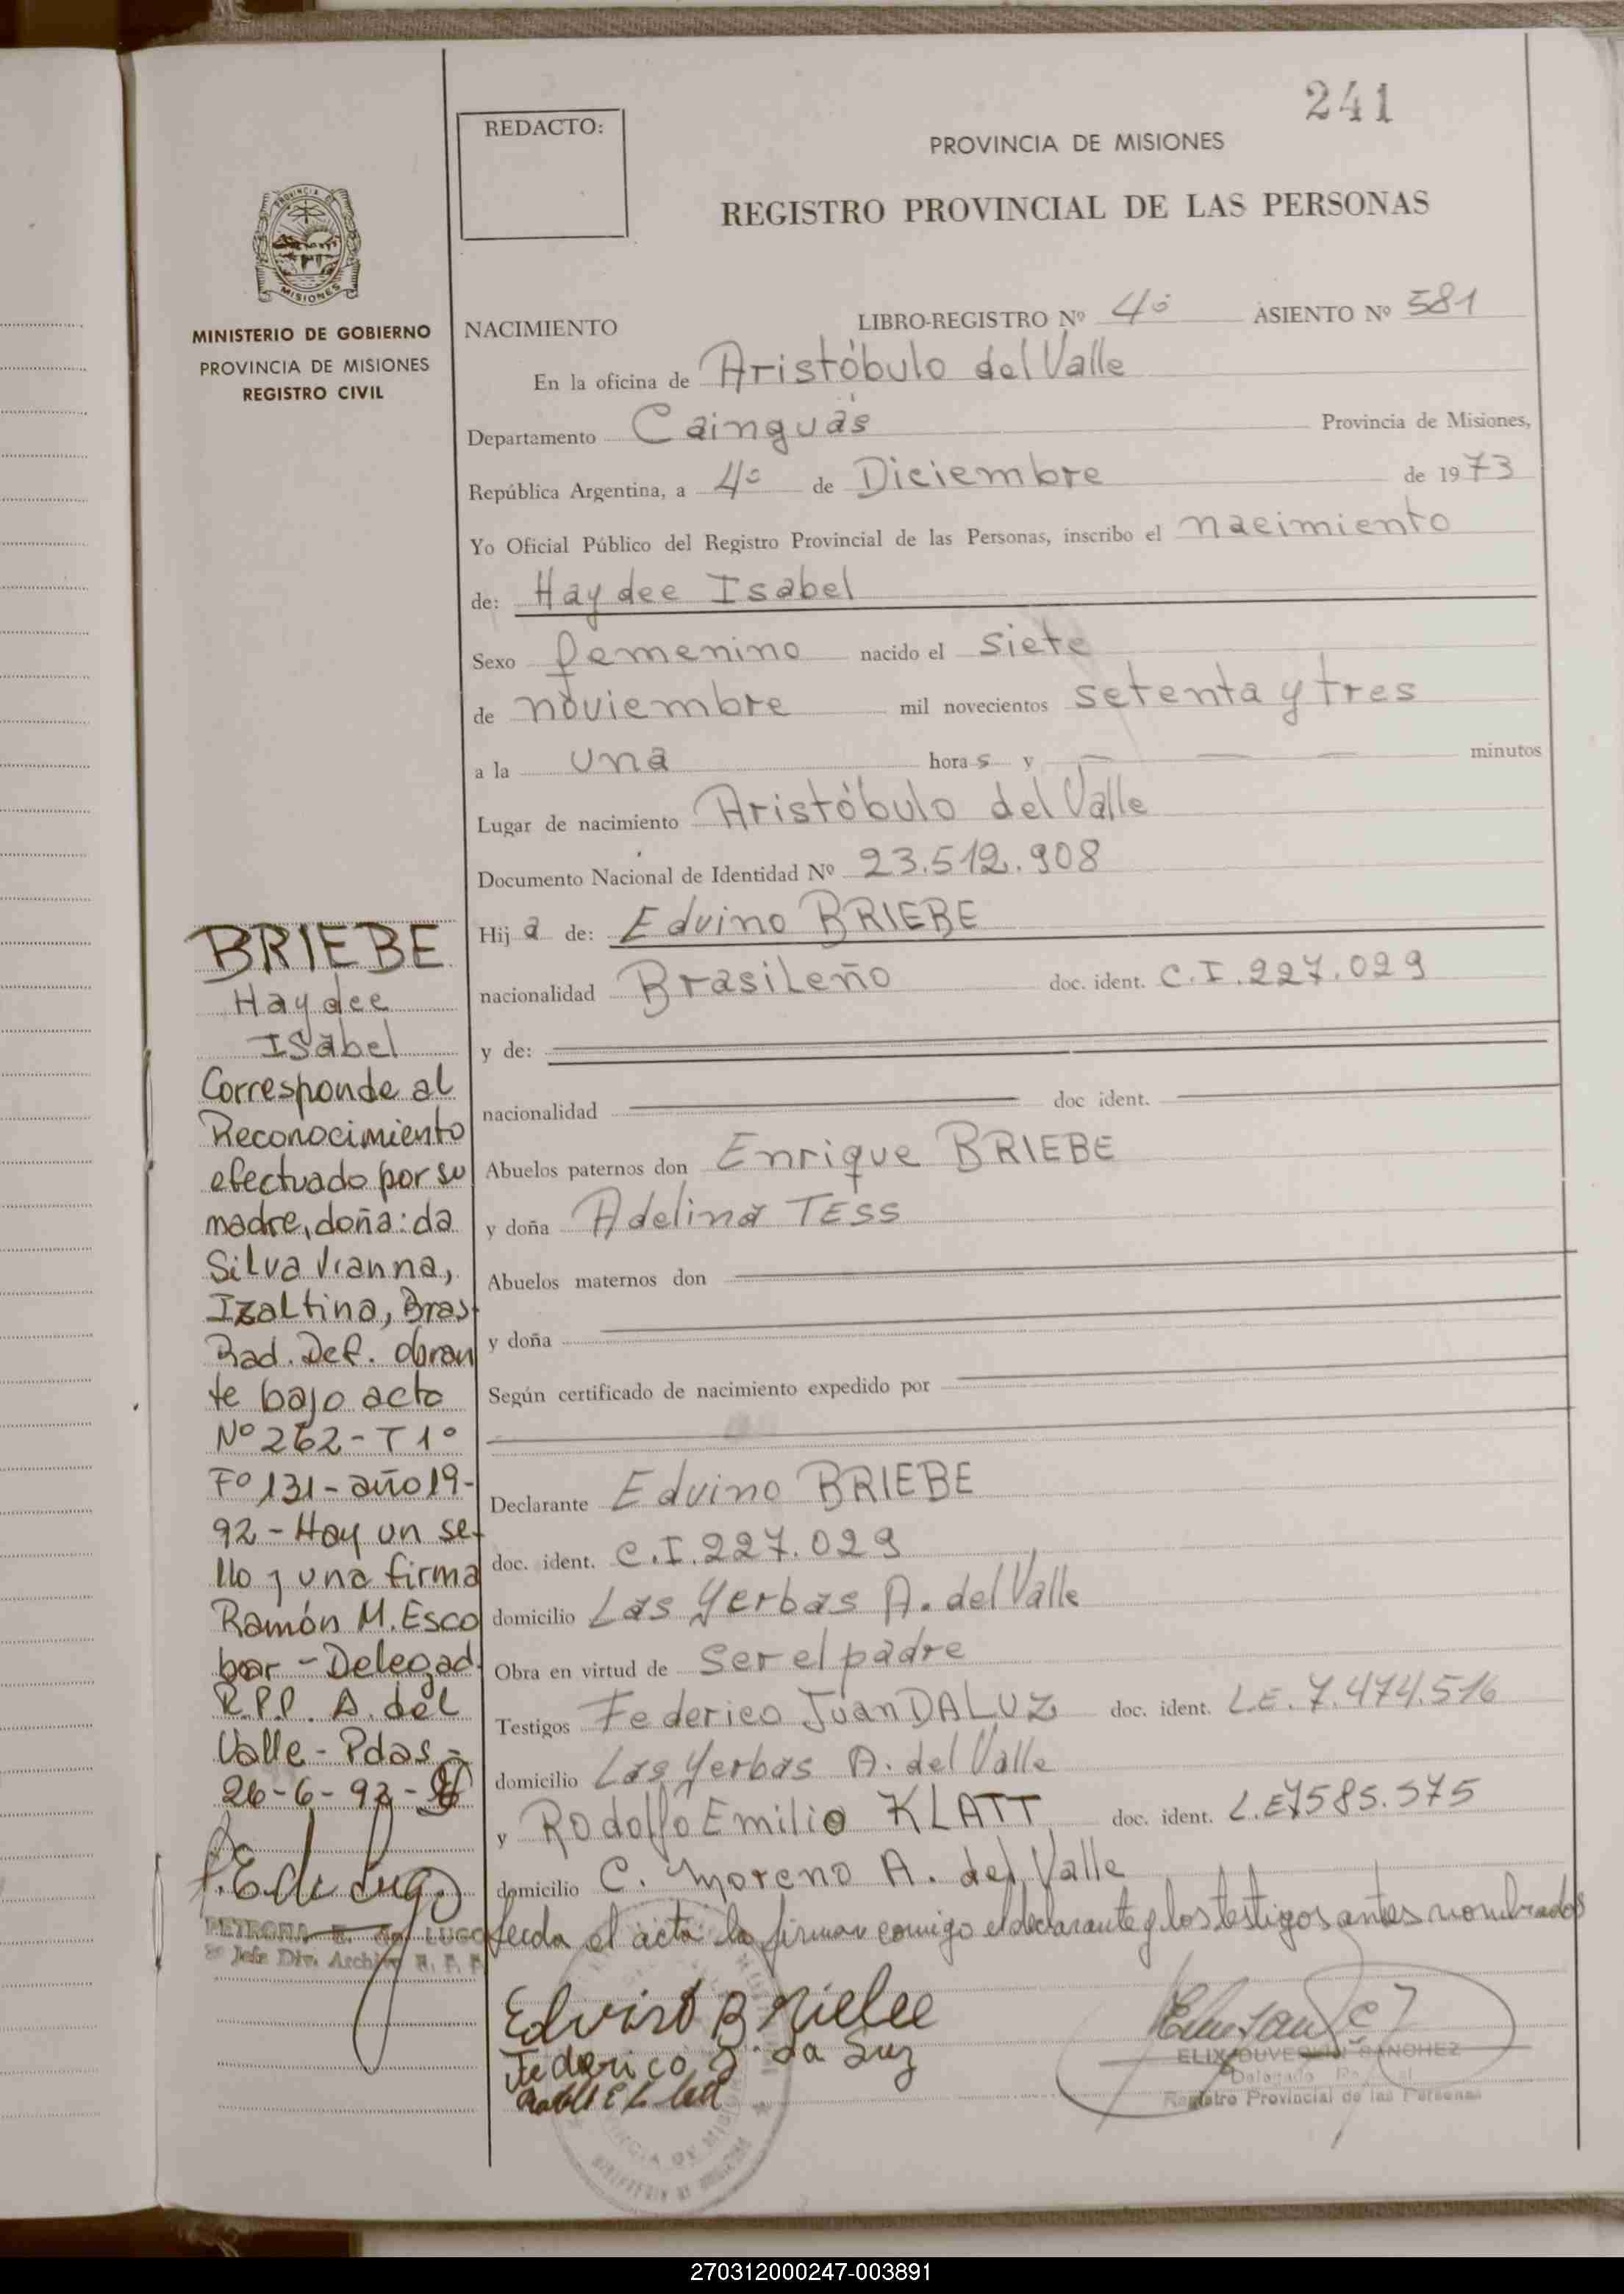 241
REDACTO:
PROVINCIA DE MISIONES
REGISTRO PROVINCIAL DE LAS PERSONAS
MISIONES
MINISTERIO DE GOBIERNO
PROVINCIA DE MISIONES
REGISTRO CIVIL
NACIMIENTO LIBRO-REGISTRO Nº 4º ASIENTO Nº 581
En la oficina de Aristóbulo del Valle
Departamento Cainguás Provincia de Misiones,
República Argentina, a 4º de Diciembre de 1973
Yo Oficial Público del Registro Provincial de las Personas, inscribo el nacimiento
de: Haydee Isabel
Sexo femenino nacido el siete
de noviembre mil novecientos setenta y tres
a la una horas y — — — minutos
Lugar de nacimiento Aristóbulo del Valle
Documento Nacional de Identidad Nº 23.512.908
Hija de: Edvino BRIEBE
nacionalidad Brasileño doc. ident. C.I.227.029
y de:
nacionalidad doc ident.
Abuelos paternos don Enrique BRIEBE
y doña Adelina TESS
Abuelos maternos don
y doña
Según certificado de nacimiento expedido por
Declarante Edvino BRIEBE
doc. ident. C.I.227.029
domicilio Las Yerbas A. del Valle
Obra en virtud de Ser el padre
Testigos Federico Juan DALUZ doc. ident. L.E. 7.474.516
domicilio Las Yerbas A. del Valle
y Rodolfo Emilio KLATT doc. ident. L.E7585.575
domicilio C. Moreno A. del Valle
el acta la firman comigo el declarante y los testigos antes nombrados
BRIEBE
Haydee
Isabel
Corresponde al
Reconocimiento
efectuado por su
madre, doña: da
Silva Vianna,
Izaltina, Bras
Rad. Def. obran
te bajo acto
Nº 262 - T 1º
Fº 131 - año 19-
92 - Hay un se-
llo y una firma
Ramón M. Esco
bar - Delegad.
R.P.P. A. del
Valle - Pdas -
26-6-92-
PETRONA E. de LUGO
Jefe Div. Archivo R. P. P.
Edvino Briebe
Federico J. da Luz
ELIX DUVERLIN SANCHEZ
Delegado
Registro Provincial de las Personas
270312000247-003891